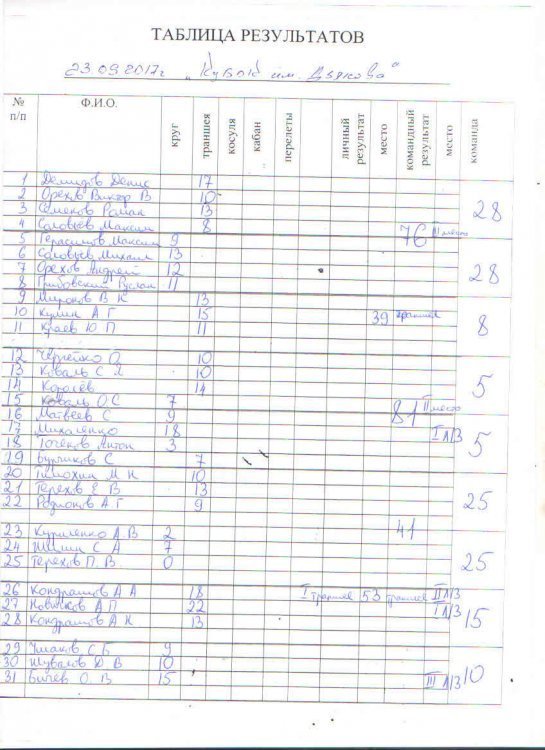 ТАБЛИЦА РЕЗУЛЬТАТОВ
23 09 2017г „Кубок им. Дьякова"
№ п/п Ф.И.О. круг траншея косуля кабан перелеты личный результат место командный результат место команда
1 Демидов Денис 17
2 Орехов Виктор В 10
3 Семеков Роман 13 28
4 Соловьёв Максим 8 76 III место
5 Герасимов Максим 9
6 Соловьев Михаил 13
7 Орехов Андрей 12 28
8 Грибовский Руслан 11
9 Миронов В Н 13
10 Кулик А Г 15 39 траншея
11 Краев Ю П 11 8
12 О 10
13 Коваль С Л 10
14 Королёв 14 5
15 Коваль О С 7
16 Матвеев С 9 81 II место
17 Михаленко 18 I Л/З
18 Точёков Антон 3 5
19 Бунчиков С 7
20 Тимохин М Н 10
21 Терехов Е В 13
22 Родионов А Г 9 25
23 Куриленко А В 2 41
24 С А 7
25 Терехов П. В. 0 25
26 Кондрашов А А 18 I траншея 53 траншея II Л/З
27 Новиков А П 22 I Л/З
28 Кондрашов А Н 13 15
29 Ушаков С Б 9
30 Шувалов Д В 10
31 Бычев О. В 15 III Л/З 10